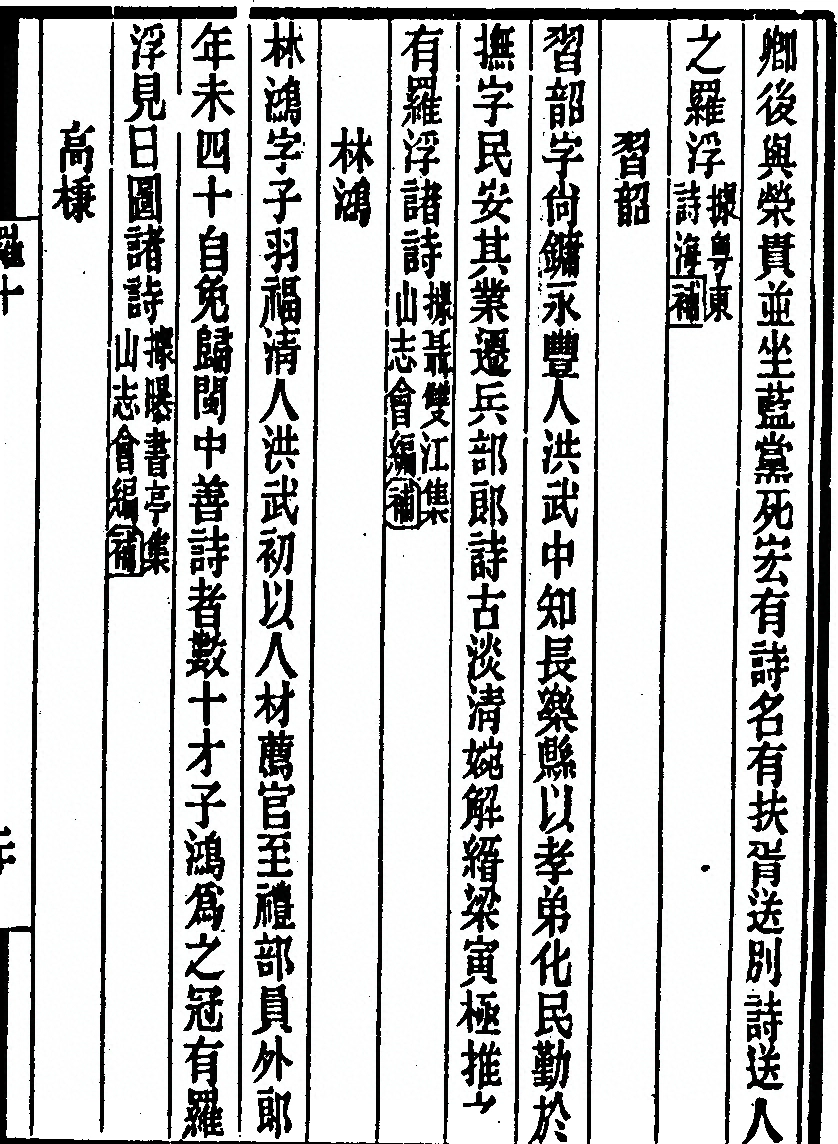 卿後與榮貴並坐藍黨死宏有詩名有扶胥送別詩送人
之羅浮據粵東詩海補
習韶
習韶字尙鏞永豐人洪武中知長樂縣以孝弟化民勤於
撫字民安其業遷兵部郎詩古淡淸婉解縉梁寅極推之
有羅浮諸詩據聶雙江集山志會編補
林鴻
林鴻字子羽福淸人洪武初以人材薦官至禮部員外郎
年未四十自免歸閩中善詩者數十才子鴻爲之冠有羅
浮見日圖諸詩據曝書亭集山志會編補
高棅